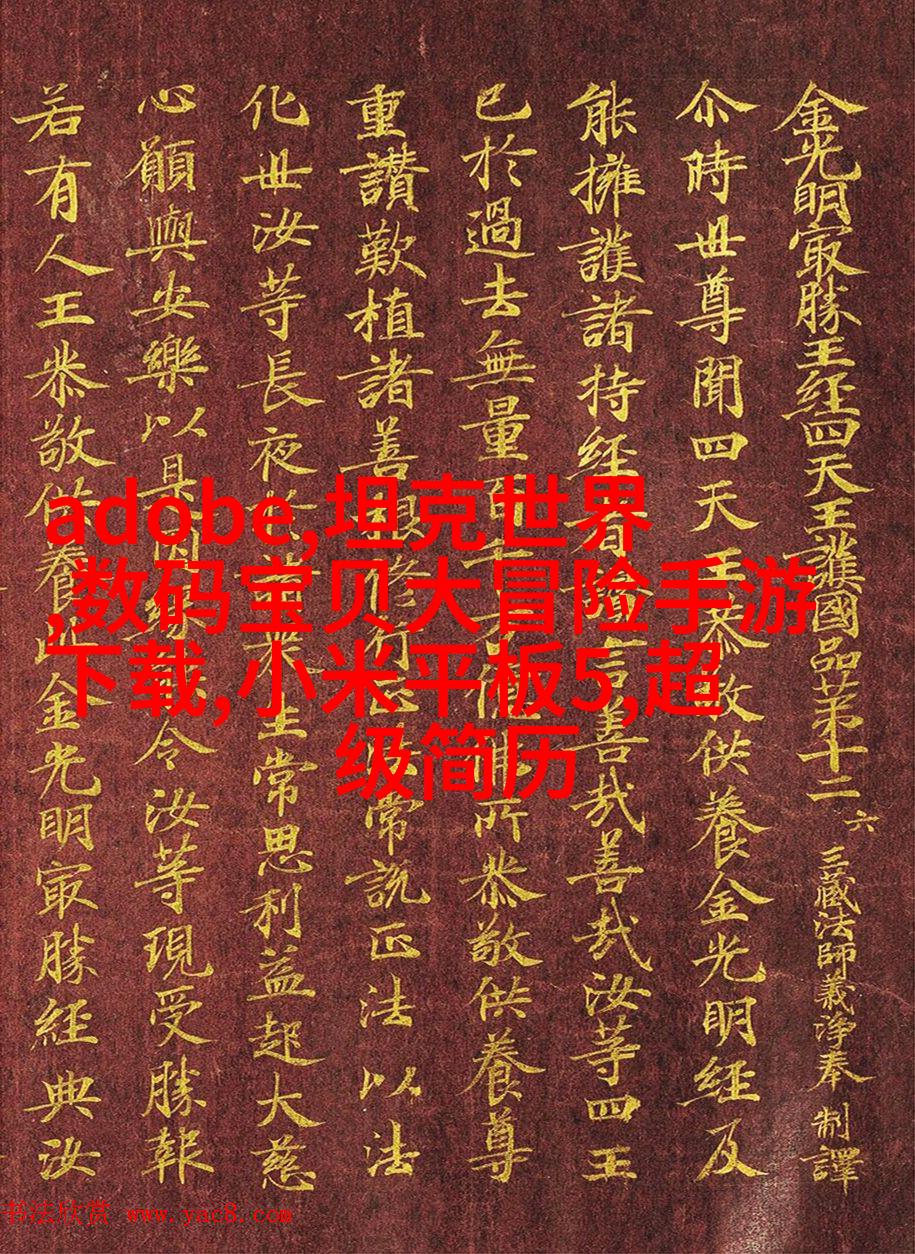 金光明㝡勝王経四天王護國品苐十二 六 三藏法師義淨奉 制譯
尒時世尊聞四天王恭敬供養金光明經及
能擁護諸持經者言善哉善哉汝等四王
已於過去無量百千佛所恭敬供養尊
重讃歎植諸善根修行正法常説正法以法
化世汝等長夜衆生常思利益起大慈
心願與安樂以是因緣令汝等現受勝報
若有人王恭敬供養此金光明㝡勝經典汝
adobe,坦克世界
,数码宝贝大冒险手游
下载,小米平板5,超
级简历
书法欣赏 www.yac8.com